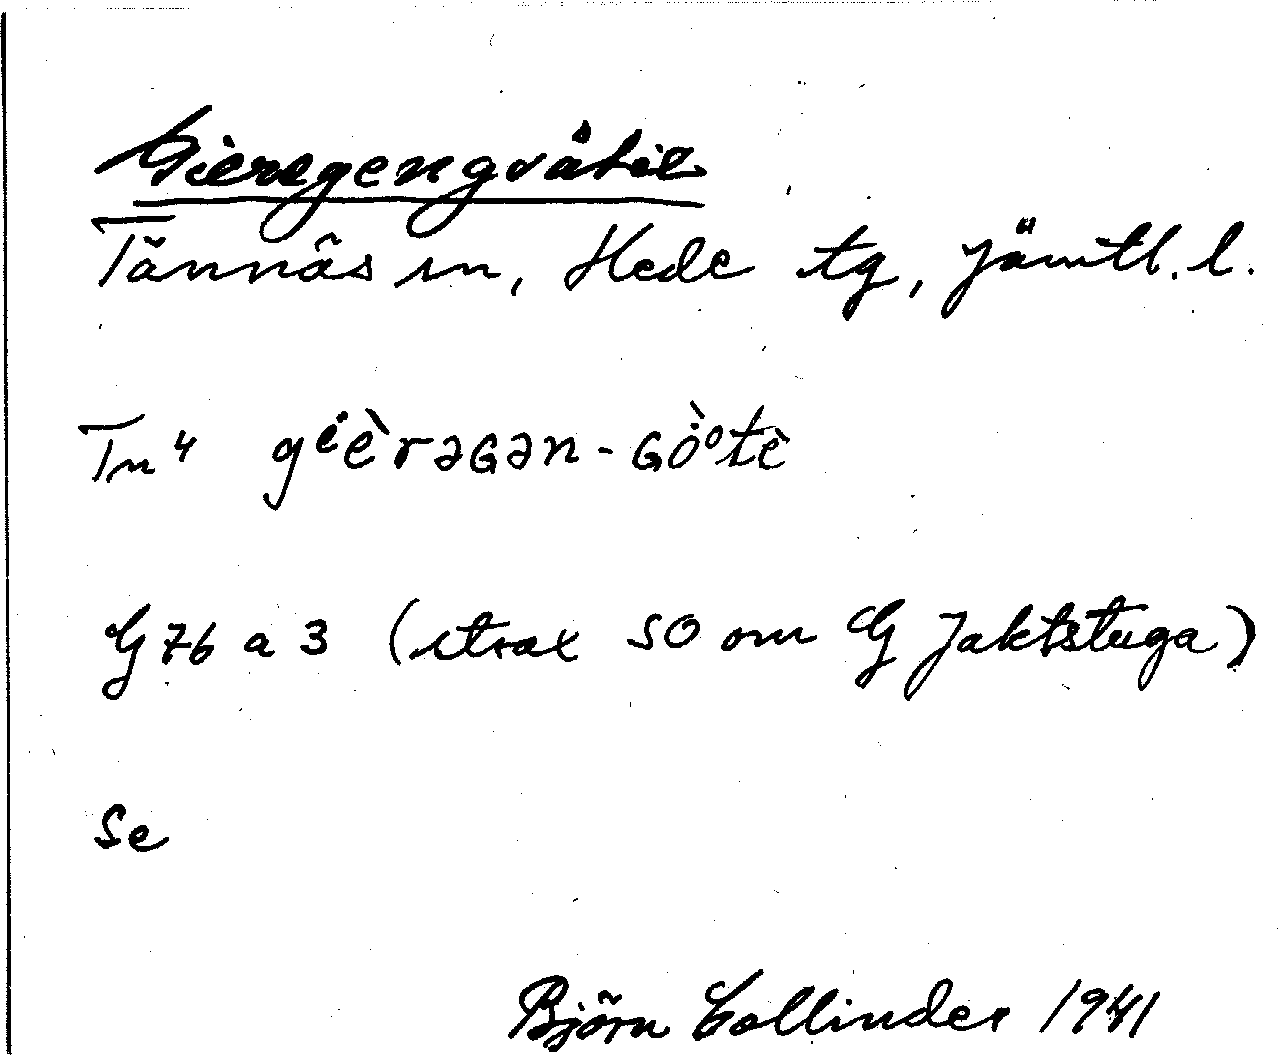 Gieregengåtie
Tännäs sn, Hede tg, Jämtl. l.
Tn⁴ gⁱèrəɢən-ɢò°tè
G 76 a 3 (strax SO om G Jaktstuga)
Se
Björn Collinder 1941